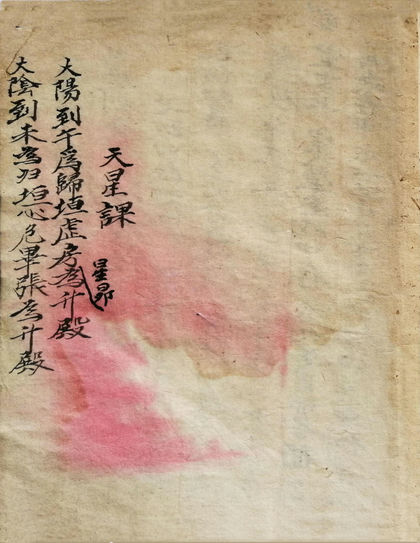 天星課
大陽到午爲歸垣虛房星昴為升殿
大陰到未為归垣心危畢張為升殿